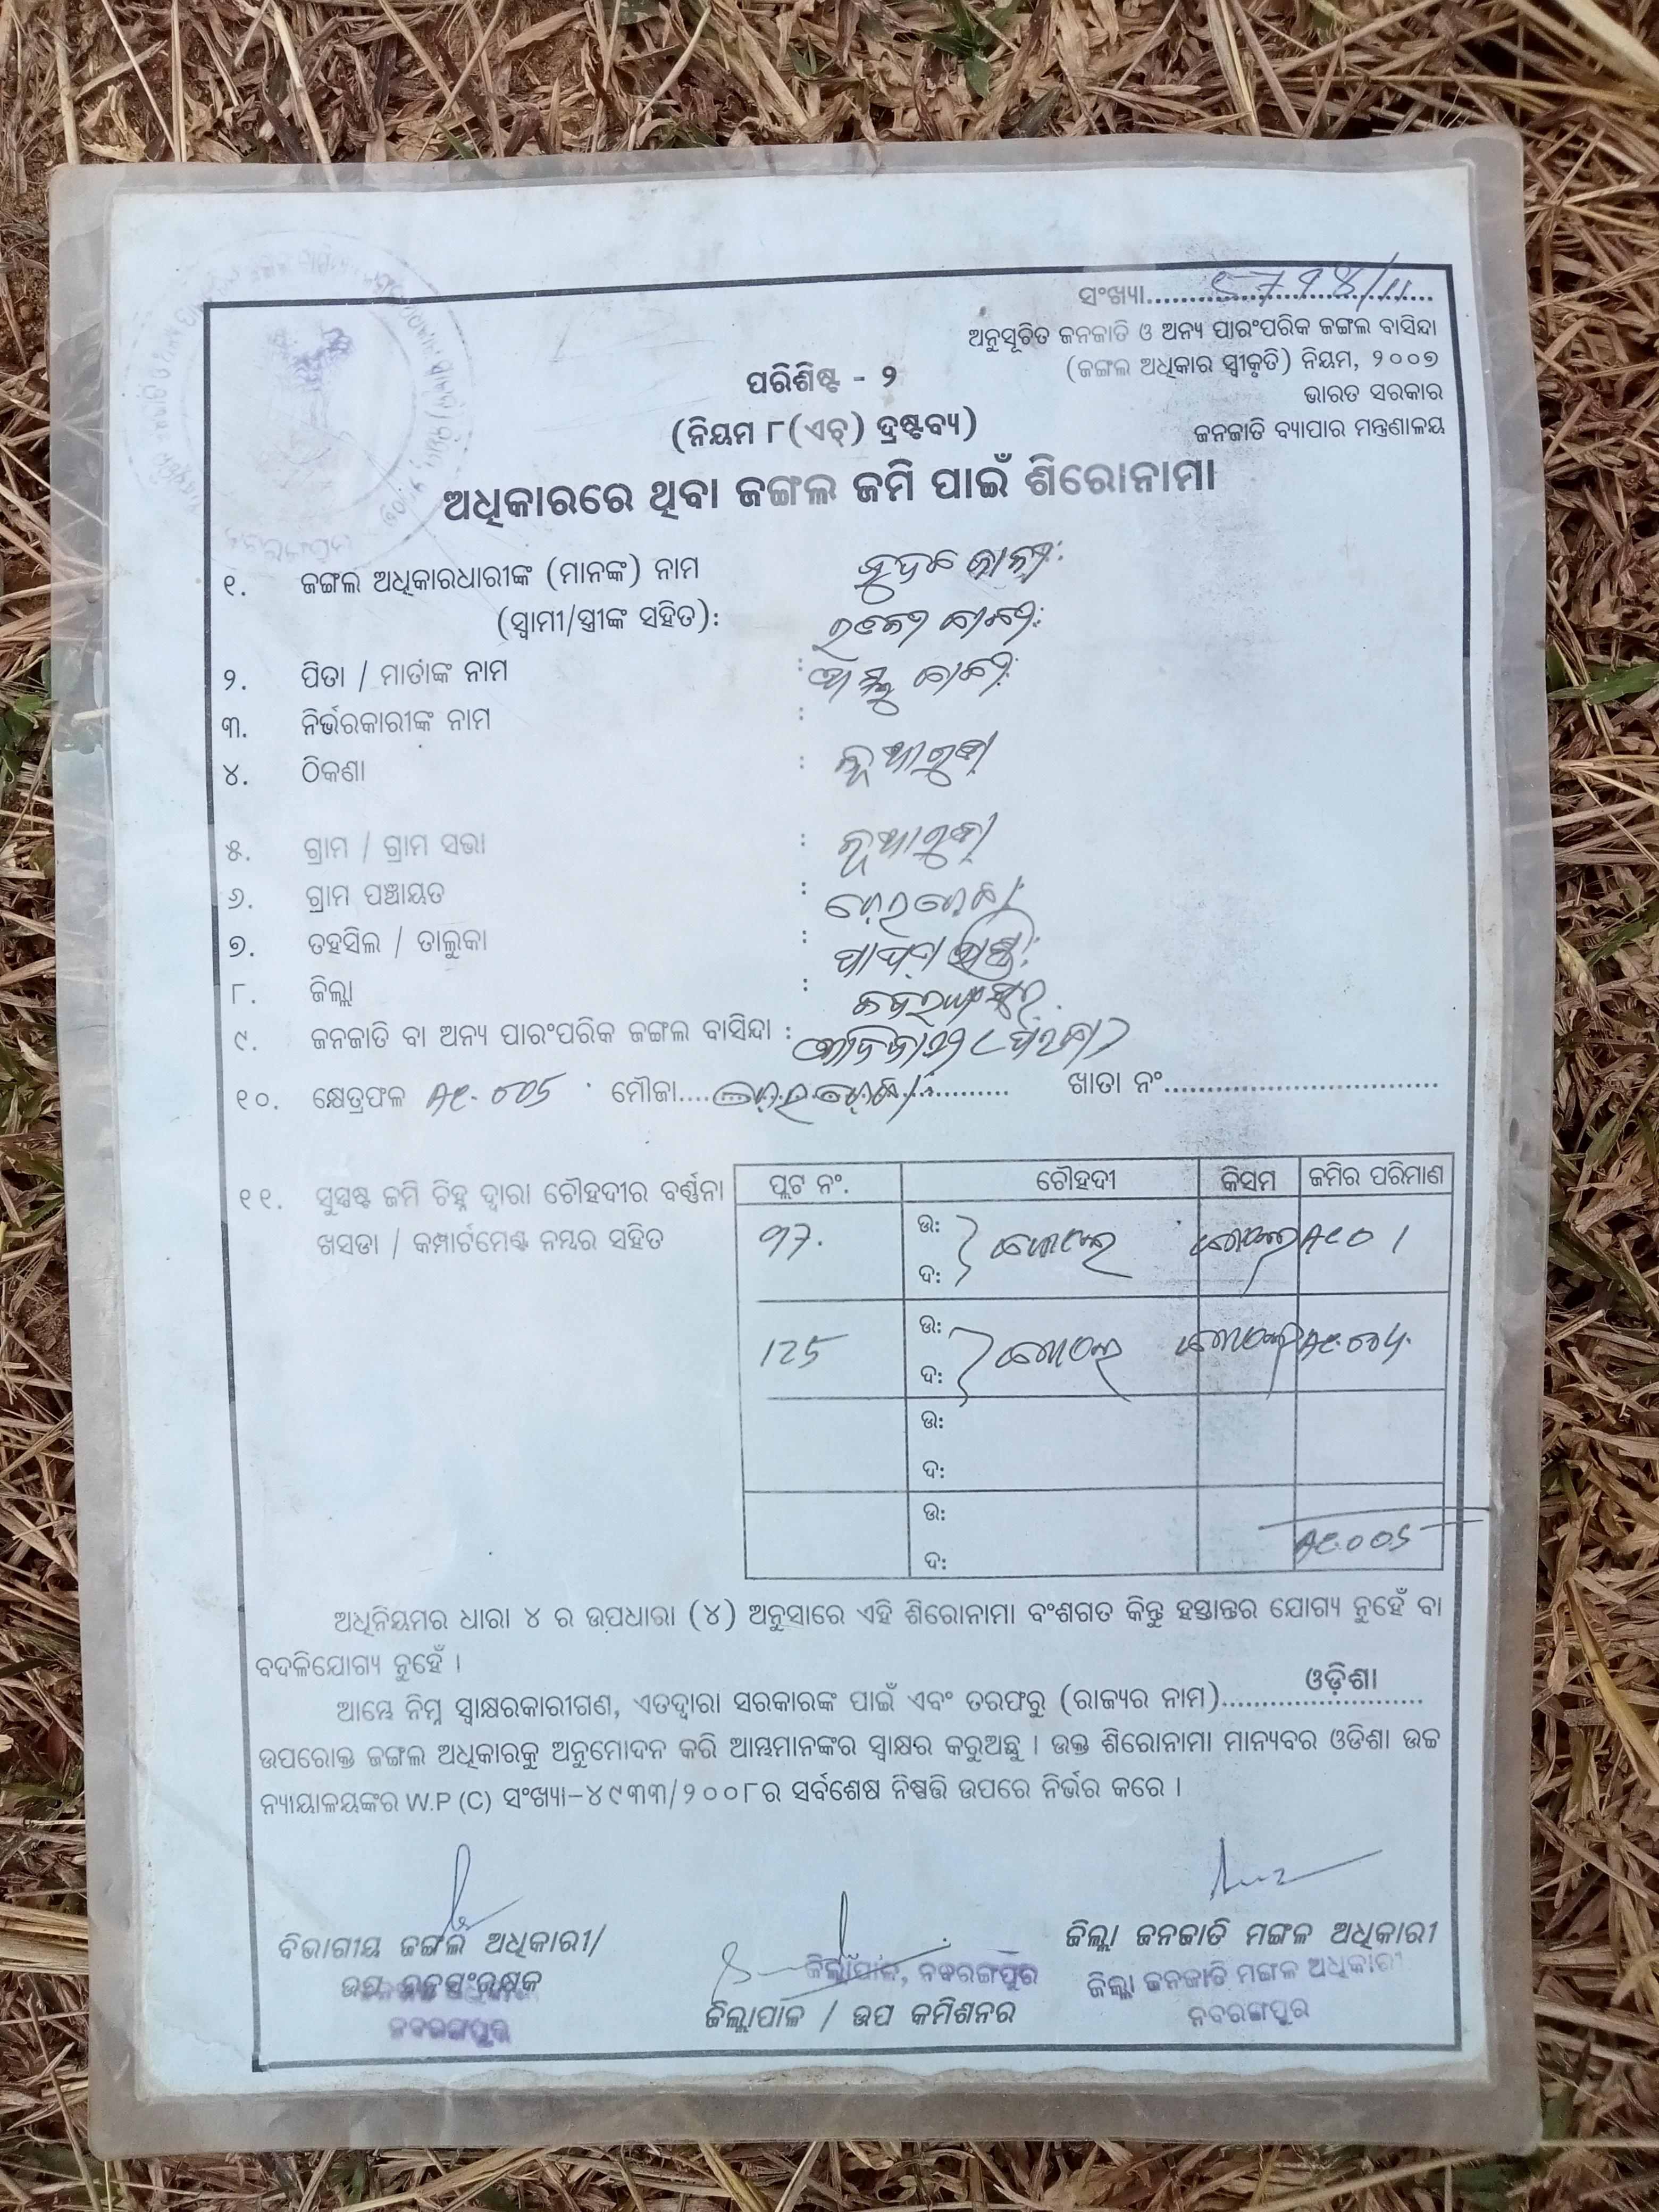 ସଂଖ୍ୟା
ଅନୁସୂଚିତ ଜନଜାତି ଓ ଅନ୍ୟ ପାରଂପରିକ ଜଙ୍ଗଲ ବାସିନ୍ଦା
(ଜଙ୍ଗଲ ଅଧିକାର ସ୍ୱୀକୃତି) ନିୟମ, ୨୦୦୭
ଭାରତ ସରକାର
ଜନଜାତି ବ୍ୟାପାର ମନ୍ତ୍ରଣାଳୟ
ପରିଶିଷ୍ଟ - ୨
(ନିୟମ ୮(ଏଚ୍) ଦ୍ରଷ୍ଟବ୍ୟ)
ଅଧିକାରରେ ଥିବା ଜଙ୍ଗଲ ଜମି ପାଇଁ ଶିରୋନାମା
୧. ଜଙ୍ଗଲ ଅଧିକାରଧାରୀଙ୍କ (ମାନଙ୍କ) ନାମ
(ସ୍ୱାମୀ/ସ୍ତ୍ରୀଙ୍କ ସହିତ):
୨. ପିତା / ମାତାଙ୍କ ନାମ :
୩. ନିର୍ଭରକାରୀଙ୍କ ନାମ :
୪. ଠିକଣା : ନୂଆଗୁଡ଼ା
୫. ଗ୍ରାମ / ଗ୍ରାମ ସଭା : ନୂଆଗୁଡ଼ା
୬. ଗ୍ରାମ ପଞ୍ଚାୟତ :
୭. ତହସିଲ / ତାଲୁକା : ପାପଡ଼ାହାଣ୍ଡି
୮. ଜିଲ୍ଲା : ନବରଙ୍ଗପୁର
୯. ଜନଜାତି ବା ଅନ୍ୟ ପାରଂପରିକ ଜଙ୍ଗଲ ବାସିନ୍ଦା : ଆଦିବାସୀ (ପରଜା)
୧୦. କ୍ଷେତ୍ରଫଳ Ac. 005 ମୌଜା ଖାତା ନଂ
୧୧. ସୁସ୍ପଷ୍ଟ ଜମି ଚିହ୍ନ ଦ୍ୱାରା ଚୌହଦୀର ବର୍ଣ୍ଣନା
ଖସଡା / କମ୍ପାର୍ଟମେଣ୍ଟ ନମ୍ବର ସହିତ
ପ୍ଲଟ ନଂ. ଚୌହଦୀ କିସମ ଜମିର ପରିମାଣ
97. ଉ: ଜଙ୍ଗଲ ଜଙ୍ଗଲ Ac 0 1
ଦ:
125 ଉ: ଜଙ୍ଗଲ ଜଙ୍ଗଲ Ac. 004.
ଦ:
ଉ:
ଦ:
ଉ:
ଦ: Ac. 005
ଅଧିନିୟମର ଧାରା ୪ ର ଉପଧାରା (୪) ଅନୁସାରେ ଏହି ଶିରୋନାମା ବଂଶଗତ କିନ୍ତୁ ହସ୍ତାନ୍ତର ଯୋଗ୍ୟ ନୁହେଁ ବା
ବଦଳିଯୋଗ୍ୟ ନୁହେଁ ।
ଆମ୍ଭେ ନିମ୍ନ ସ୍ୱାକ୍ଷରକାରୀଗଣ, ଏତଦ୍ୱାରା ସରକାରଙ୍କ ପାଇଁ ଏବଂ ତରଫରୁ (ରାଜ୍ୟର ନାମ) ଓଡ଼ିଶା
ଉପରୋକ୍ତ ଜଙ୍ଗଲ ଅଧିକାରକୁ ଅନୁମୋଦନ କରି ଆମ୍ଭମାନଙ୍କର ସ୍ୱାକ୍ଷର କରୁଅଛୁ । ଉକ୍ତ ଶିରୋନାମା ମାନ୍ୟବର ଓଡିଶା ଉଚ୍ଚ
ନ୍ୟାୟାଳୟଙ୍କର W.P (C) ସଂଖ୍ୟା-୪୯୩୩/୨୦୦୮ର ସର୍ବଶେଷ ନିଷ୍ପତ୍ତି ଉପରେ ନିର୍ଭର କରେ ।
ବିଭାଗୀୟ ଜଙ୍ଗଲ ଅଧିକାରୀ/
ଉପ ବନସଂରକ୍ଷକ
ନବରଙ୍ଗପୁର
ଜିଲ୍ଲାପାଳ, ନବରଙ୍ଗପୁର
ଜିଲ୍ଲାପାଳ / ଉପ କମିଶନର
ଜିଲ୍ଲା ଜନଜାତି ମଙ୍ଗଳ ଅଧିକାରୀ
ଜିଲ୍ଲା ଜନଜାତି ମଙ୍ଗଳ ଅଧିକାରୀ
ନବରଙ୍ଗପୁର